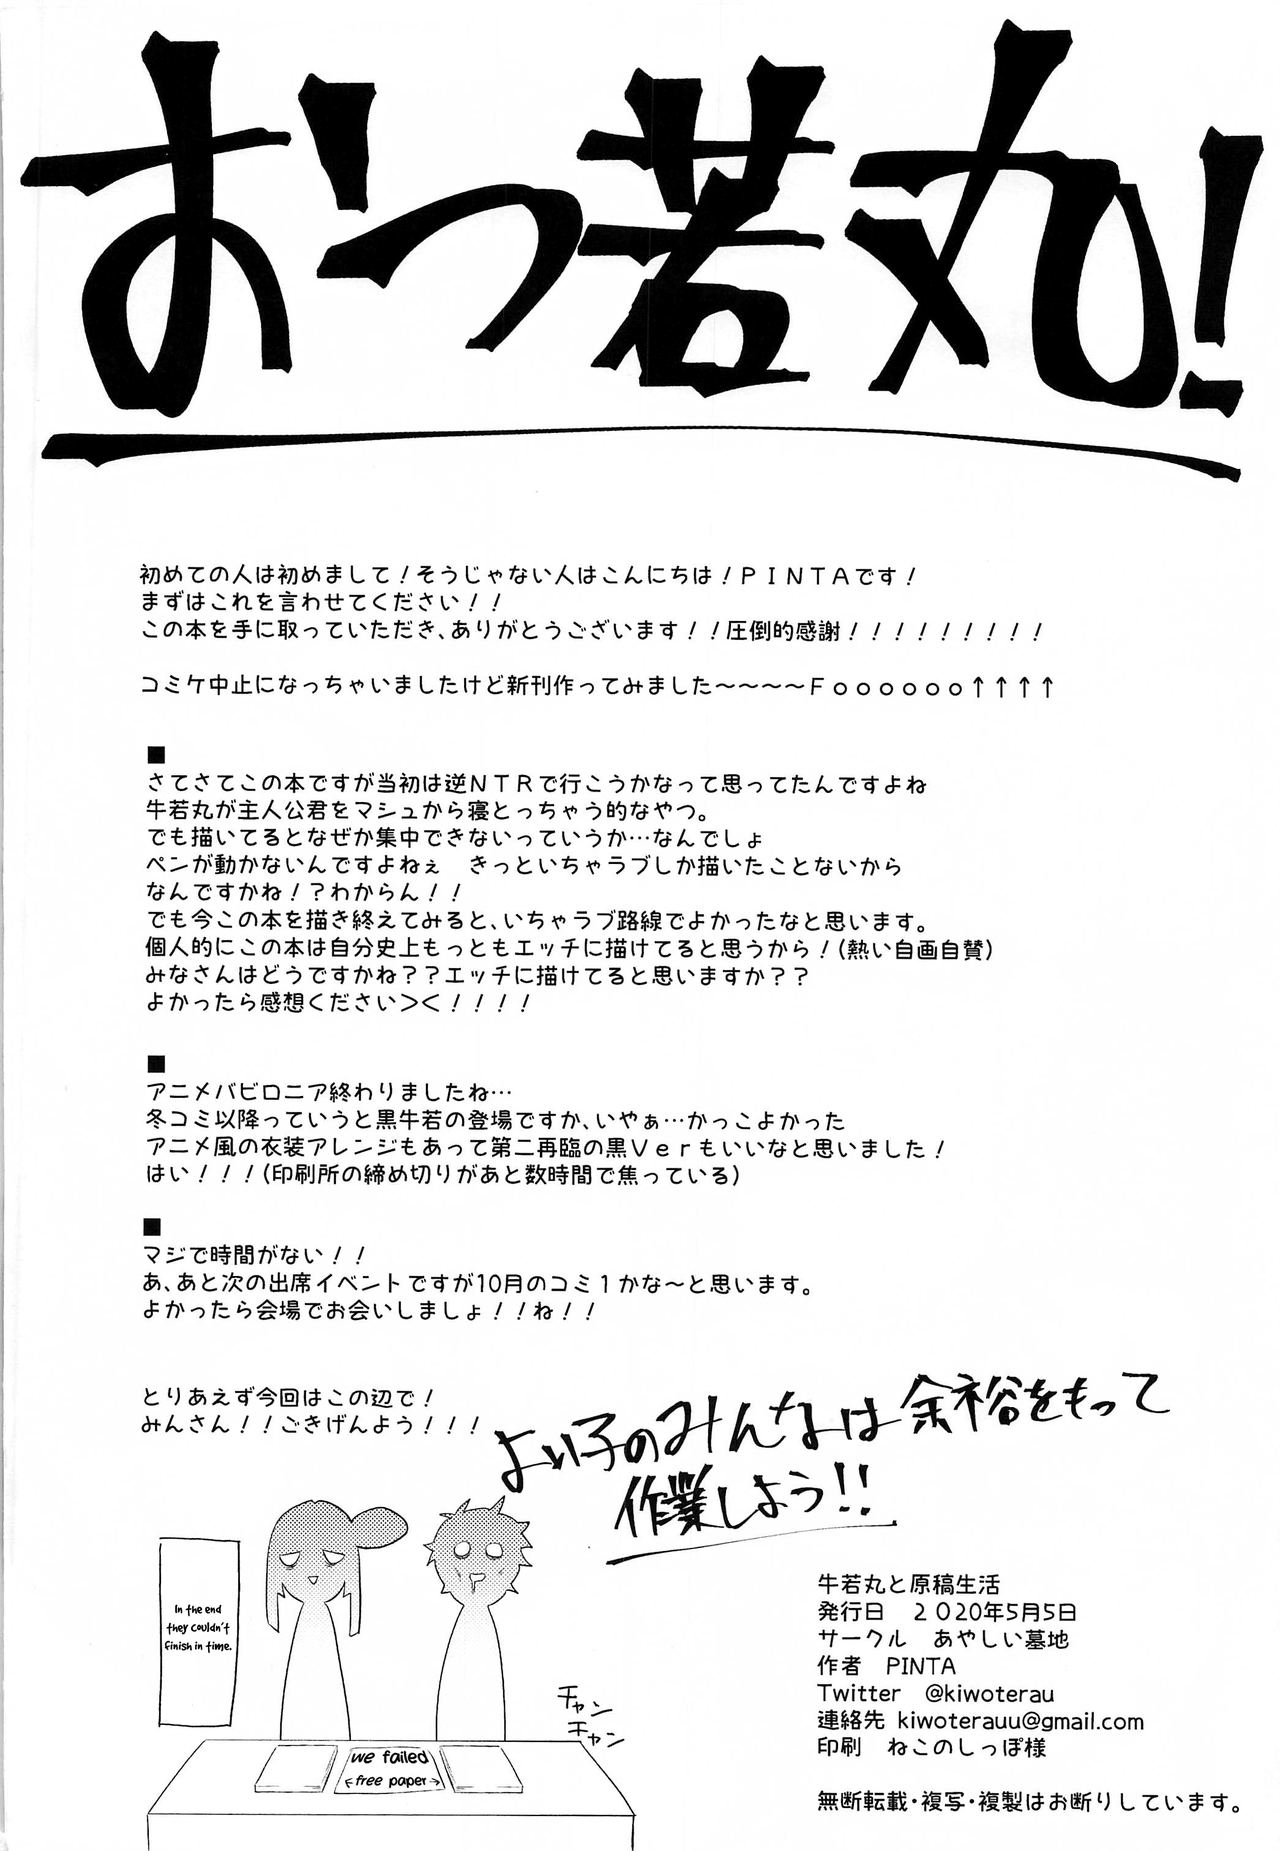 おつ若丸!
初めての人は初めまして！そうじゃない人はこんにちは！ＰＩＮＴＡです！
まずはこれを言わせてください！！
この本を手に取っていただき、ありがとうございます！！圧倒的感謝！！！！！！！！！
コミケ中止になっちゃいましたけど新刊作ってみました～～～～Ｆｏｏｏｏｏｏ↑↑↑↑
■
さてさてこの本ですが当初は逆ＮＴＲで行こうかなって思ってたんですよね
牛若丸が主人公君をマシュから寝とっちゃう的なやつ。
でも描いてるとなぜか集中できないっていうか…なんでしょ
ペンが動かないんですよねぇ　きっといちゃラブしか描いたことないから
なんですかね！？わからん！！
でも今この本を描き終えてみると、いちゃラブ路線でよかったなと思います。
個人的にこの本は自分史上もっともエッチに描けてると思うから！(熱い自画自賛)
みなさんはどうですかね？？エッチに描けてると思いますか？？
よかったら感想ください＞＜！！！！
■
アニメバビロニア終わりましたね…
冬コミ以降っていうと黒牛若の登場ですか、いやぁ…かっこよかった
アニメ風の衣装アレンジもあって第二再臨の黒Ｖｅｒもいいなと思いました！
はい！！！(印刷所の締め切りがあと数時間で焦っている)
■
マジで時間がない！！
あ、あと次の出席イベントですが10月のコミ１かな～と思います。
よかったら会場でお会いしましょ！！ね！！
とりあえず今回はこの辺で！
みんさん！！ごきげんよう！！！
よい子のみんなは余裕をもって
作業しよう!!
In the end
they couldn't
finish in time.
チャン
チャン
we failed
←free paper→
牛若丸と原稿生活
発行日　２０20年5月5日
サークル　あやしい墓地
作者　PINTA
Twitter　@kiwoterau
連絡先 kiwoterauu@gmail.com
印刷　ねこのしっぽ様
無断転載・複写・複製はお断りしています。